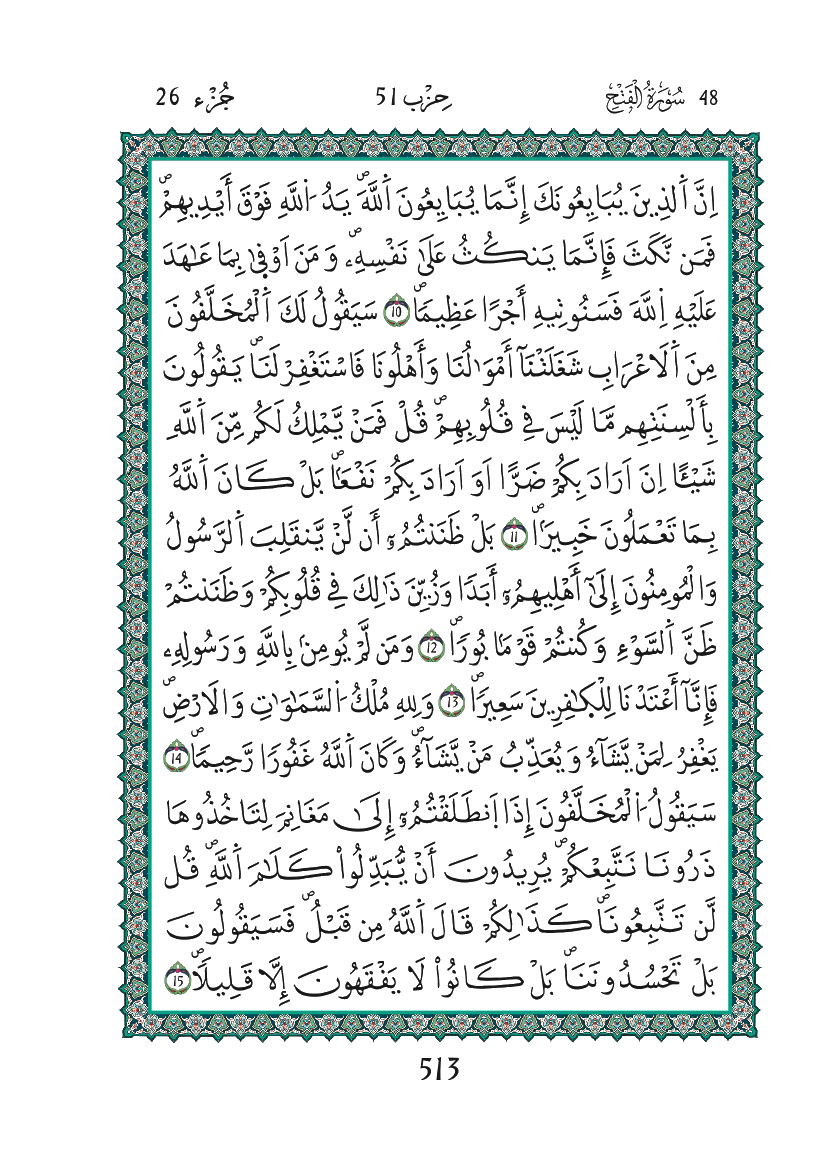 48 سُورَةُ الْفَتْحِ حِزْب 51 جُزْء 26
اِنَّ اَ۬لذِينَ يُبَايِعُونَكَ إِنَّمَا يُبَايِعُونَ اَ۬للَّهَۖ يَدُ اُ۬للَّهِ فَوْقَ أَيْدِيهِمْۖ
فَمَن نَّكَثَ فَإِنَّمَا يَنكُثُ عَلَىٰ نَفْسِهِۦۖ وَمَنَ اَوْف۪ىٰ بِمَا عَٰهَدَ
عَلَيْهِ اِ۬للَّهَ فَسَنُوتِيهِ أَجْرًا عَظِيمٗاۖ 10 سَيَقُولُ لَكَ اَ۬لْمُخَلَّفُونَ
مِنَ اَ۬لَاعْرَابِ شَغَلَتْنَآ أَمْوَٰلُنَا وَأَهْلُونَا فَاسْتَغْفِرْ لَنَاۖ يَقُولُونَ
بِأَلْسِنَتِهِم مَّا لَيْسَ فِے قُلُوبِهِمْۖ قُلْ فَمَنْ يَّمْلِكُ لَكُم مِّنَ اَ۬للَّهِ
شَيْـًٔا اِنَ اَرَادَ بِكُمْ ضَرًّا اَوَ اَرَادَ بِكُمْ نَفْعَاۢۖ بَلْ كَانَ اَ۬للَّهُ
بِمَا تَعْمَلُونَ خَبِيرَاۢۖ 11 بَلْ ظَنَنتُمُۥٓ أَن لَّنْ يَّنقَلِبَ اَ۬لرَّسُولُ
وَالْمُومِنُونَ إِلَىٰٓ أَهْلِيهِمُۥٓ أَبَدًا وَزُيِّنَ ذَٰلِكَ فِے قُلُوبِكُمْ وَظَنَنتُمْ
ظَنَّ اَ۬لسَّوْءِ وَكُنتُمْ قَوْمَاۢ بُورٗاۖ 12 وَمَن لَّمْ يُومِنۢ بِاللَّهِ وَرَسُولِهِۦ
فَإِنَّآ أَعْتَدْنَا لِلْكٰ۪فِرِينَ سَعِيرٗاۖ 13 وَلِلهِ مُلْكُ اُ۬لسَّمَٰوَٰتِ وَالَارْضِۖ
يَغْفِرُ لِمَنْ يَّشَآءُ وَيُعَذِّبُ مَنْ يَّشَآءُۖ وَكَانَ اَ۬للَّهُ غَفُورٗا رَّحِيمٗاۖ 14
سَيَقُولُ اُ۬لْمُخَلَّفُونَ إِذَا اَ۪نطَلَقْتُمُۥٓ إِلَىٰ مَغَانِمَ لِتَاخُذُوهَا
ذَرُونَا نَتَّبِعْكُمْۖ يُرِيدُونَ أَنْ يُّبَدِّلُواْ كَلَٰمَ اَ۬للَّهِۖ قُل
لَّن تَتَّبِعُونَاۖ كَذَٰلِكُمْ قَالَ اَ۬للَّهُ مِن قَبْلُۖ فَسَيَقُولُونَ
بَلْ تَحْسُدُونَنَاۖ بَلْ كَانُواْ لَا يَفْقَهُونَ إِلَّا قَلِيلٗاۖ 15
513